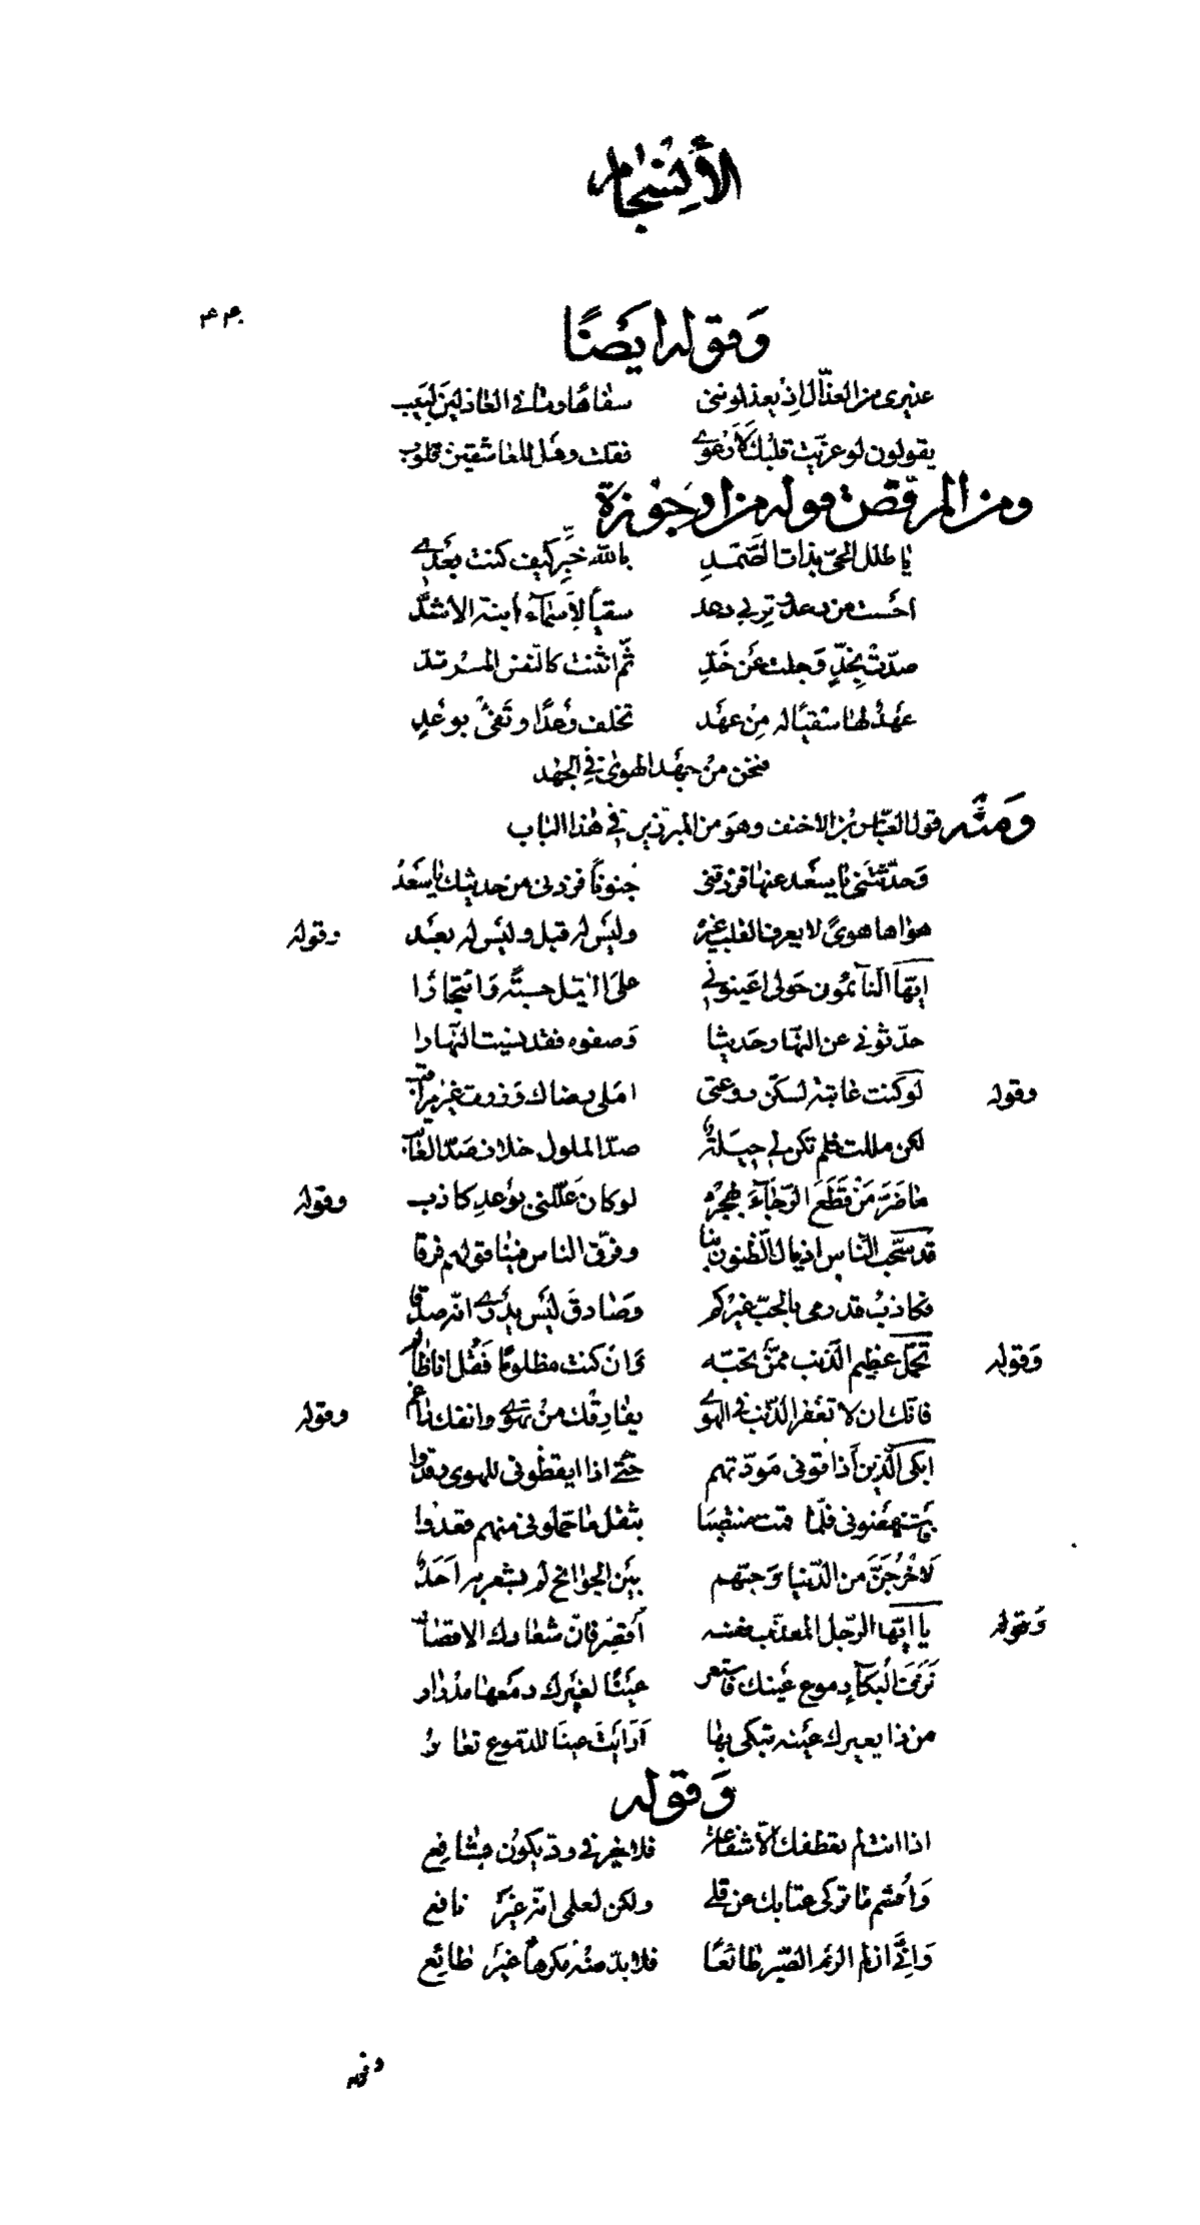 الأنسجام
٤٤٠
وقوله ايضًا
عذيرى من العذّال اذ يعذلوننى سفاهًا وما فى العاذلين لبيب
يقولون لو عزّيت قلبك لارعوى فقلت وهل للعاشقين قلوب
ومن المرقص قوله من ارجوزة
يا طلل الحىّ بذات الصّمد بالله خبّر كيف كنت بعدى
اوحشت من دعد وترب دعد سقياً لأسمآء ابنة الاشدّ
صدّت بخدٍّ وجلت عن خدّ ثمّ انثنت كالنّفس المرتدّ
عهد لها سقيًا له من عهد تخلف وعدًا وتفى بوعد
فنحن من جهد الهوى فى الجهد
ومنه قول العبّاس بن الاحنف وهو من المبرزين فى هذا الباب
وحدّثتنى يا سعد عنها فزدتنى جنونًا فزدنى من حديثك يا سعد
هواها هوىً لا يعرف القلب غيره وليس له قبل وليس له بعد وقوله
ايّها النّآئمون حولى اعينونى على الليل حسبةً وائتجارًا
حدّثونى عن النّهار حديثا وصفوه فقد نسيت النّهارا
وقوله لو كنت عاتبة لسكّن روعتى املى رضاك وزرت غير مراقب
لكن مللت فلم تكن لى حيلة صدّ الملول خلاف صدّ العاتب
ما ضرّ من قطع الرّجآء بهجره لو كان علّلنى بوعد كاذب وقوله
قد سحّب النّاس اذيال الظّنون بنا وفرّق الناس فينا قولهم فرقا
فكاذب قد رمى بالحبّ غيركم وصادق ليس يدرى انّه صدقا
وقوله تحمّل عظيم الذّنب ممّن تحبّه وان كنت مظلومًا فقل انا ظالم
فانّك ان لا تغفر الذّنب فى الهوى يفارقك من تهوى وانفك راغم وقوله
ابكى الّذين أذاقونى مودّتهم حتّى اذا ايقظونى للهوى رقدوا
واستنهضونى فلمّا قمت منتصبًا بثقل ما حمّلونى منهم قعدوا
لاخرجنّ من الدّنيا وحبّهم بين الجوانح لم يشعر به احد
وقوله يا ايّها الرّجل المعذّب نفسه أقصر فانّ شفاءك الاقصار
نزف البكآء دموع عينك فاستعر عينًا لغيرك دمعها مدرار
من ذا يعيرك عينه تبكى بها أرأيت عينًا للدّموع تعار
وقوله
اذا انت لم يعطفك الّا شفاعة فلا خير فى ودّ يكون بشافع
وأقسم ما تركى عتابك عن قلى ولكن لعلمى انّه غير نافع
وانّى اذا لم الزم الصّبر طائعًا فلا بدّ منه مكرهًا غير طائع
وقوله